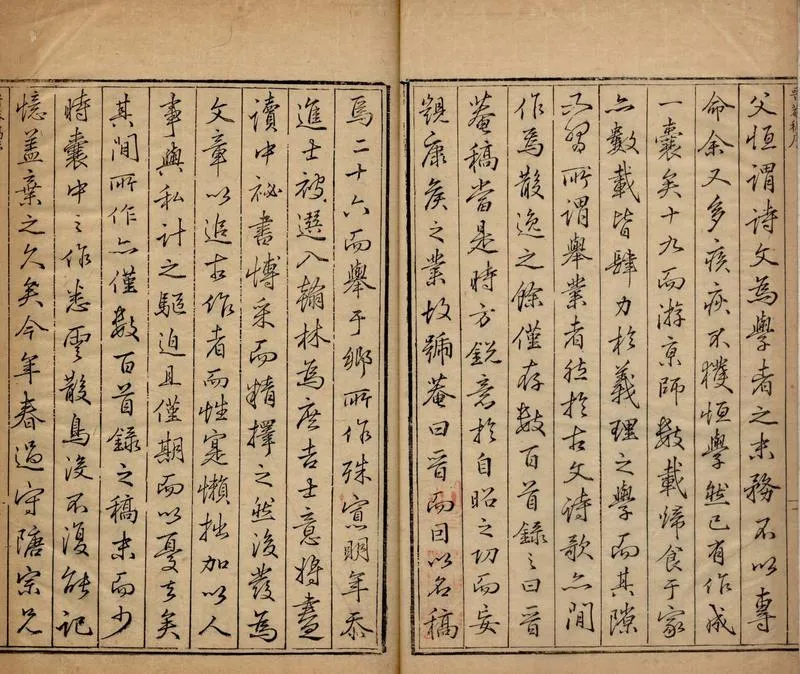 晉菴稿序
父恒謂詩文為學者之末務不以專
命余又多疾疢不獲恒學然已有作成
一囊矣十九而游京師數載歸食于家
亦數載皆肆力於義理之學而其隙
習所謂舉業者然於古文詩歌亦間
作焉散逸之餘僅存數百首錄之曰晉
菴稿當是時方銳意於自昭之功而妄
覬康侯之業故號菴曰晉而因以名稿
焉二十六而舉于鄉所作殊寡明年忝
進士被選入翰林為庶吉士意將盡
讀中祕書博采而精擇之然後發為
文章以追古作者而性寔懶拙加以人
事與私計之驅迫且僅期而以憂去矣
其間所作亦僅數百首錄之稿末而少
時囊中之作悉雲散鳥沒不復能記
憶蓋棄之久矣今年春過守宗兄